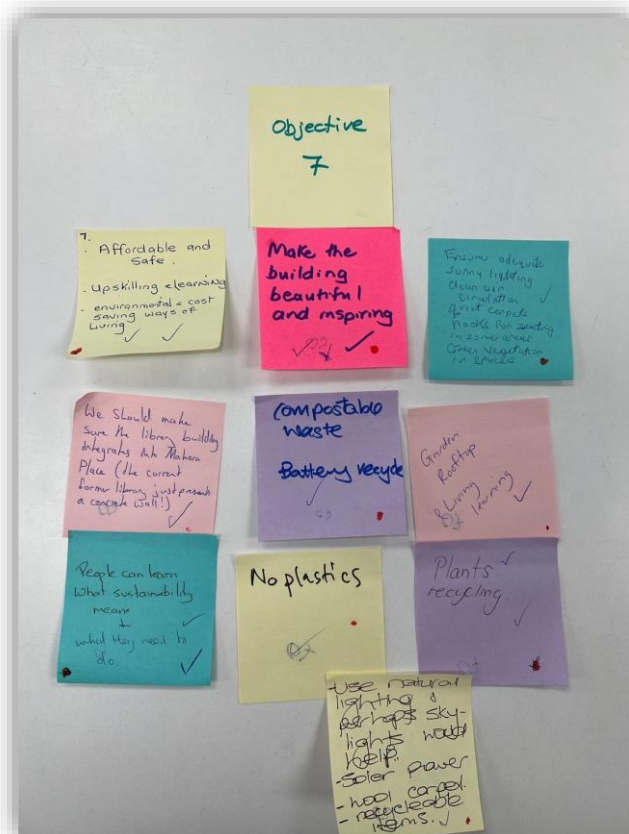 Objective
7
7.
. Affordable and
Safe.
. Upskilling elearning
. environmental & cost
saving ways of
living
Make the
building
beautiful
and inspiring
Ensure adequate
sunny lighting
clean air
circulation
Quiet carpets
nooks for seating
in some areas
Green vegetation
in spaces
We should make
sure the library building
integrates into Mahara
Place (the current
former library just presents
a concrete wall!)
Compostable
waste
Battery recycle
Garden
Rooftop
& Living learning
People can learn
what sustainability
means
+
what they need to
do.
No plastics
Plants
recycling
-Use natural
lighting &
perhaps sky-
lights would
help.
-Solar power
- wool carpet.
- recycleable
items.